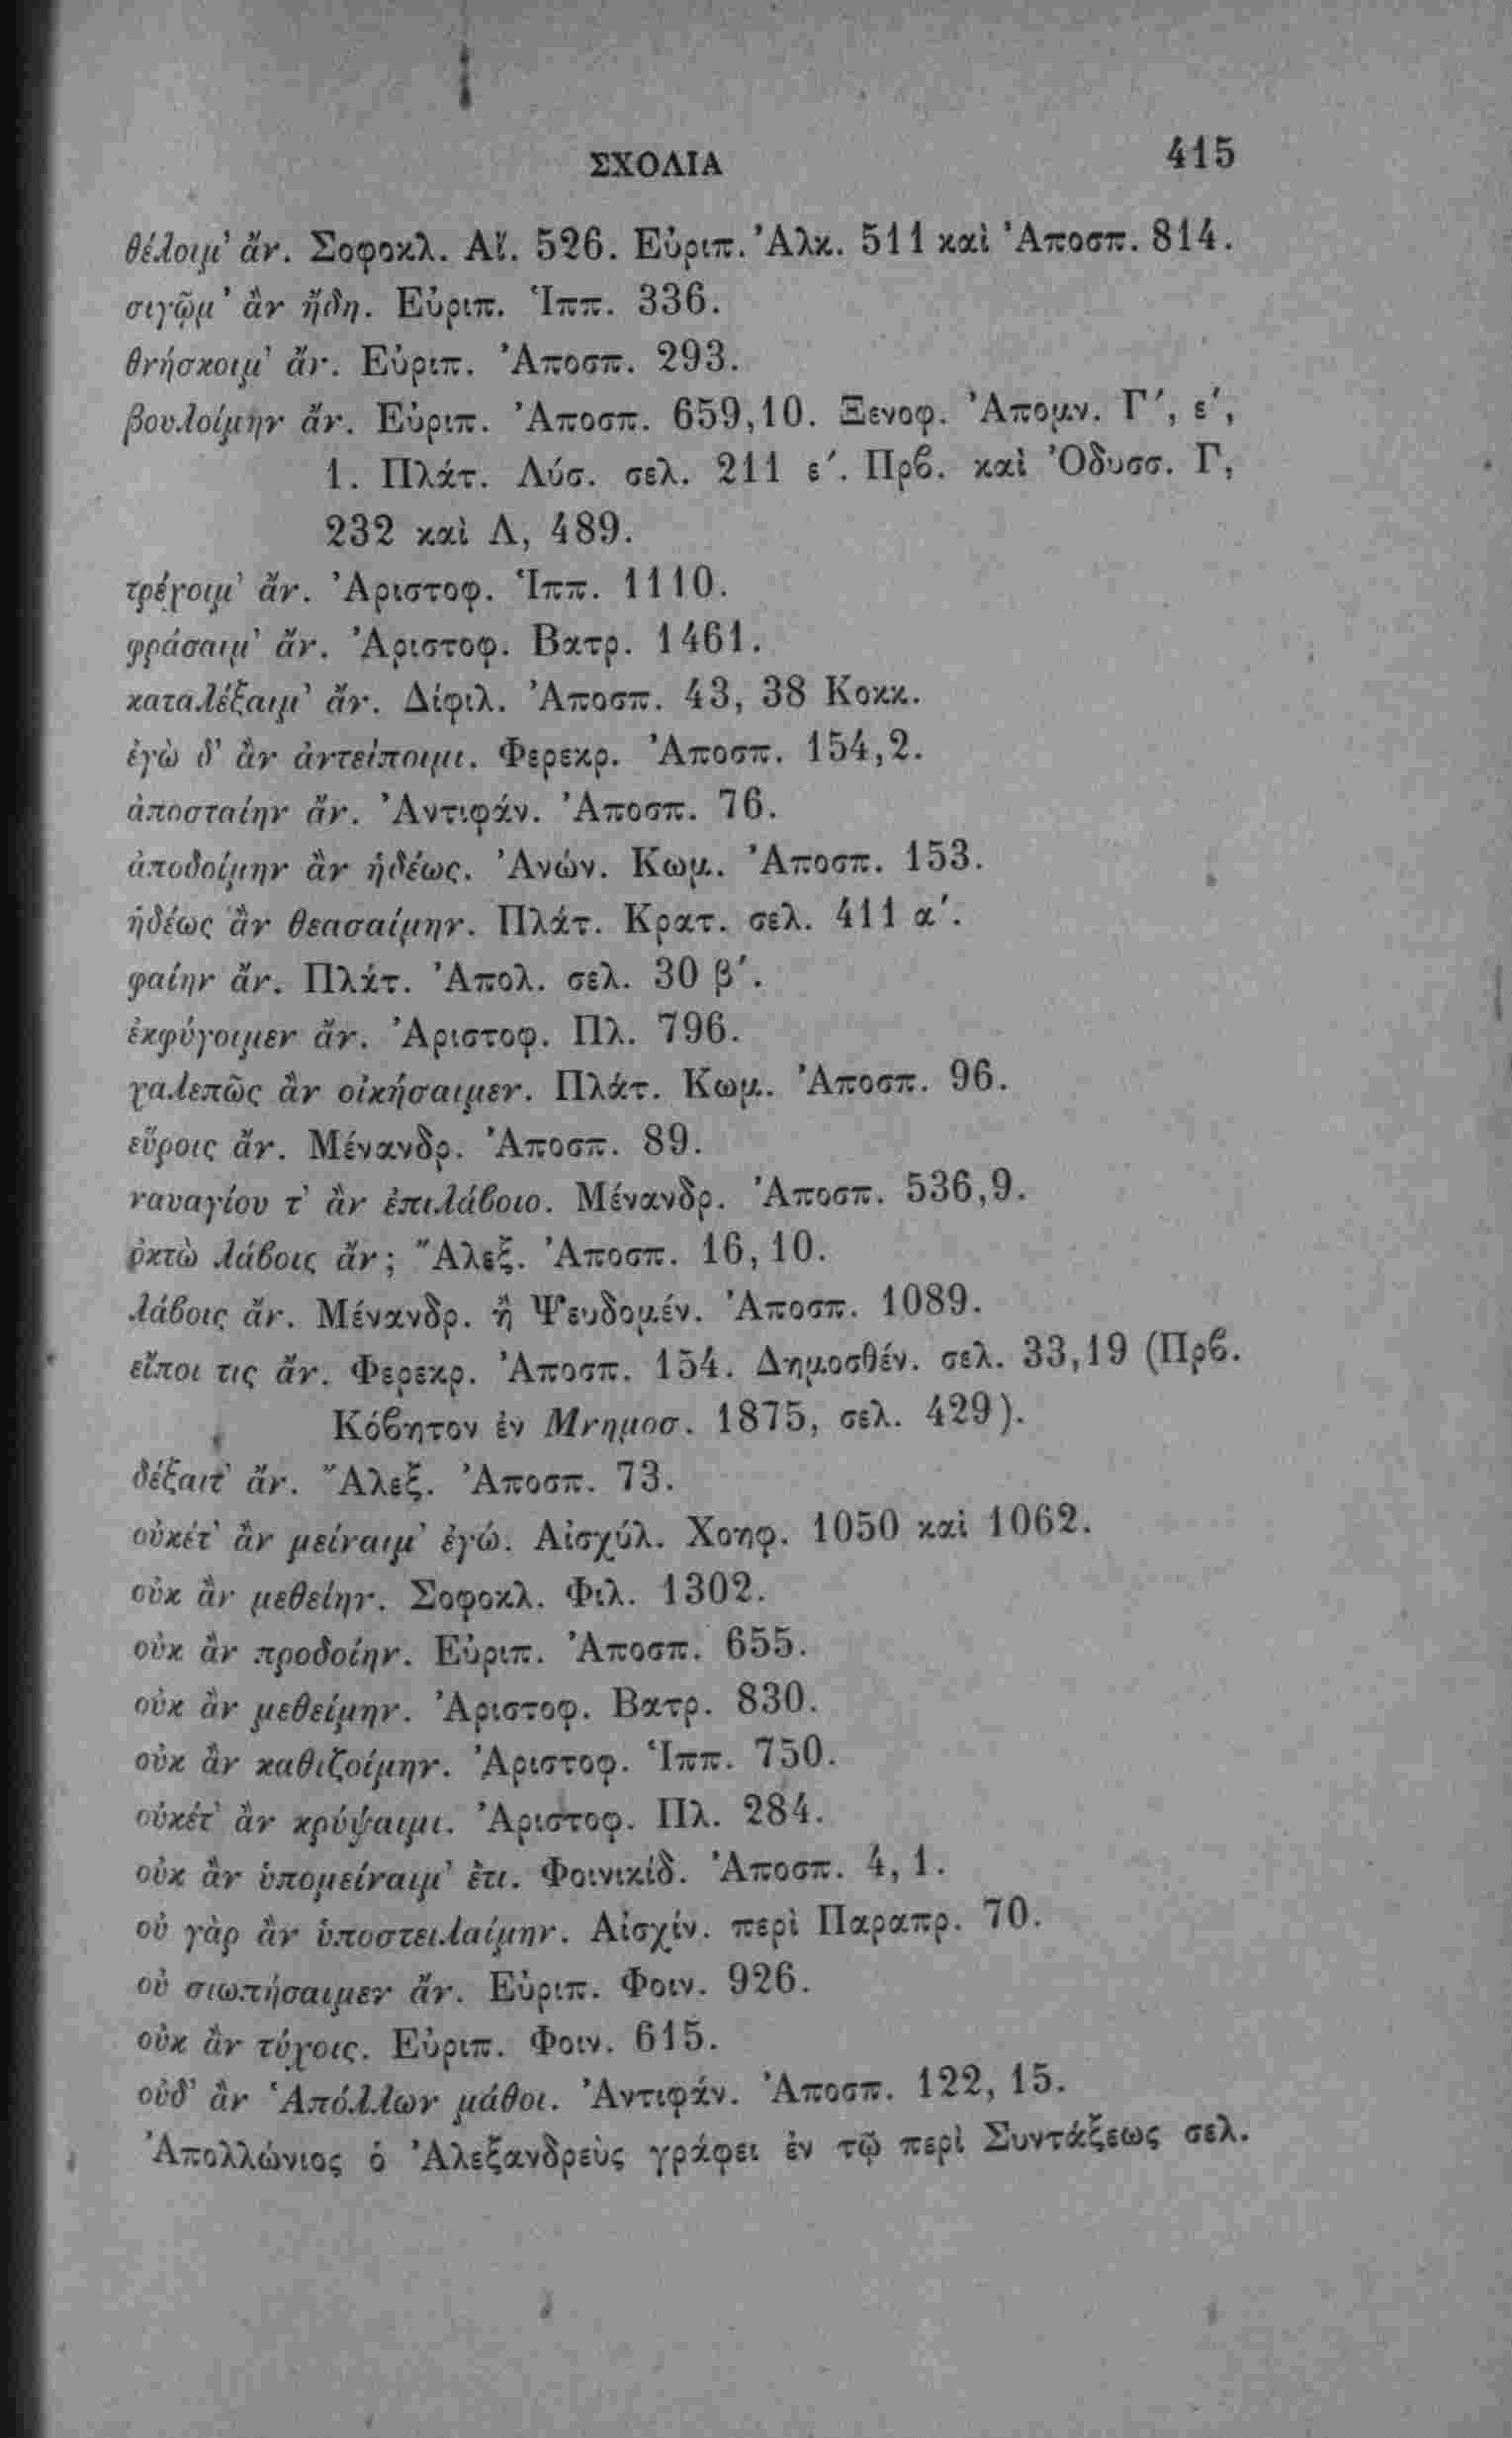 ΣΧΟΛΙΑ 415
θέλοιμ' ἄν. Σοφοκλ. Αἴ. 526. Εὐριπ. Ἀλκ. 511 καὶ Ἀποσπ. 814.
σιγῷμ' ἂν ἤδη. Εὐριπ. Ἱππ. 336.
θνήσκοιμ' ἄν. Εὐριπ. Ἀποσπ. 293.
βουλοίμην ἄν. Εὐριπ. Ἀποσπ. 659,10. Ξενοφ. Ἀπομν. Γ', ε',
1. Πλάτ. Λύσ. σελ. 211 ε'. Πρβ. καὶ Ὀδυσσ. Γ,
232 καὶ Λ, 489.
τρέχοιμ' ἄν. Ἀριστοφ. Ἱππ. 1110.
φράσαιμ' ἄν. Ἀριστοφ. Βατρ. 1461.
καταλέξαιμ' ἄν. Δίφιλ. Ἀποσπ. 43, 38 Κοκκ.
ἐγὼ δ' ἂν ἀντείποιμι. Φερεκρ. Ἀποσπ. 154,2.
ἀποσταίην ἄν. Ἀντιφάν. Ἀποσπ. 76.
ἀποδοίμην ἂν ἡδέως. Ἀνών. Κωμ. Ἀποσπ. 153.
ἡδέως ἂν θεασαίμην. Πλάτ. Κρατ. σελ. 411 α'.
φαίην ἄν. Πλάτ. Ἀπολ. σελ. 30 β'.
ἐκφύγοιμεν ἄν. Ἀριστοφ. Πλ. 796.
χαλεπῶς ἂν οἰκήσαιμεν. Πλάτ. Κωμ. Ἀποσπ. 96.
εὕροις ἄν. Μένανδρ. Ἀποσπ. 89.
ναυαγίου τ' ἂν ἐπιλάβοιο. Μένανδρ. Ἀποσπ. 536,9.
ὀκτὼ λάβοις ἄν; Ἄλεξ. Ἀποσπ. 16,10.
λάβοις ἄν. Μένανδρ. ἢ Ψευδομέν. Ἀποσπ. 1089.
εἴποι τις ἄν. Φερεκρ. Ἀποσπ. 154. Δημοσθέν. σελ. 33,19 (Πρβ.
Κόβητον ἐν Μνημοσ. 1875, σελ. 429).
δέξαιτ' ἄν. Ἄλεξ. Ἀποσπ. 73.
οὐκέτ' ἂν μείναιμ' ἐγώ. Αἰσχύλ. Χοηφ. 1050 καὶ 1062.
οὐκ ἂν μεθείην. Σοφοκλ. Φιλ. 1302.
οὐκ ἂν προδοίην. Εὐριπ. Ἀποσπ. 655.
οὐκ ἂν μεθείμην. Ἀριστοφ. Βατρ. 830.
οὐκ ἂν καθιζοίμην. Ἀριστοφ. Ἱππ. 750.
οὐκέτ' ἂν κρύψαιμι. Ἀριστοφ. Πλ. 284.
οὐκ ἂν ὑπομείναιμ' ἔτι. Φοινικίδ. Ἀποσπ. 4, 1.
οὐ γὰρ ἂν ὑποστειλαίμην. Αἰσχίν. περὶ Παραπρ. 70.
οὐ σιωπήσαιμεν ἄν. Εὐριπ. Φοιν. 926.
οὐκ ἂν τύχοις. Εὐριπ. Φοιν. 615.
οὐδ' ἂν Ἀπόλλων μάθοι. Ἀντιφάν. Ἀποσπ. 122, 15.
Ἀπολλώνιος ὁ Ἀλεξανδρεὺς γράφει ἐν τῷ περὶ Συντάξεως σελ.